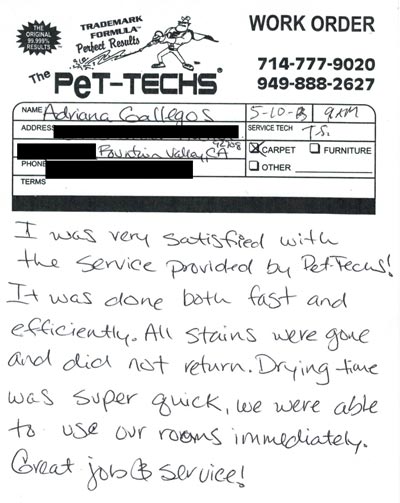 THE ORIGINAL 99.995% RESULTS
TRADEMARK FORMULA™
Perfect Results
The Pet-Techs®
WORK ORDER
714-777-9020
949-888-2627
NAME Adriana Gallegos
5-10-13 9AM
ADDRESS
SERVICE TECH T.S.
Fountain Valley, CA 92708
CARPET FURNITURE
PHONE
OTHER
TERMS
I was very satisfied with
the service provided by Pet-Techs!
It was done both fast and
efficiently. All stains were gone
and did not return. Drying time
was super quick, we were able
to use our rooms immediately.
Great job & service!